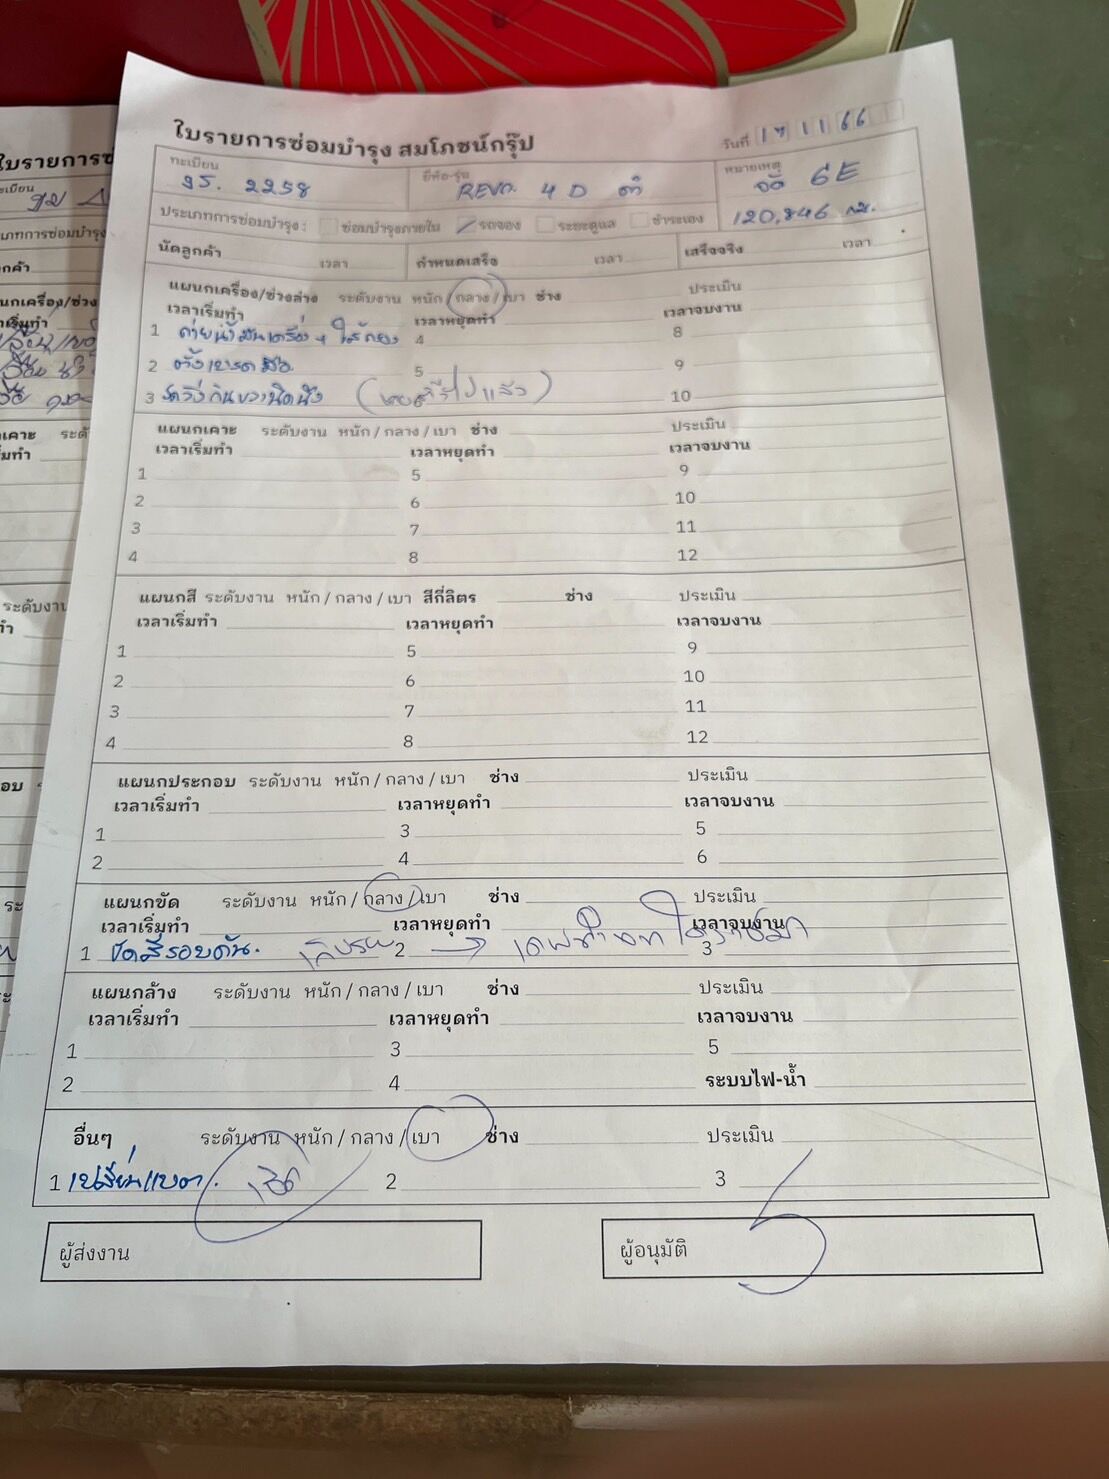 ใบรายการซ่อมบำรุง สมโภชน์กรุ๊ป วันที่ 17 11 66
ทะเบียน ยี่ห้อ-รุ่น หมายเหตุ
2258 REVO 4 D ดำ 6E
ประเภทการซ่อมบำรุง : ซ่อมบำรุงภายใน รถจอง ระยะดูแล ชำระเอง 120,846 กม.
นัดลูกค้า เวลา กำหนดเสร็จ เวลา เสร็จจริง เวลา
แผนกเครื่อง/ช่วงล่าง ระดับงาน หนัก / กลาง / เบา ช่าง ประเมิน
เวลาเริ่มทำ เวลาหยุดทำ เวลาจบงาน
1 ถ่ายน้ำมันเครื่อง + ไส้กรอง 4 8
2 ตั้งเบรคมือ 5 9
3 10
แผนกเคาะ ระดับงาน หนัก / กลาง / เบา ช่าง ประเมิน
เวลาเริ่มทำ เวลาหยุดทำ เวลาจบงาน
1 5 9
2 6 10
3 7 11
4 8 12
แผนกสี ระดับงาน หนัก / กลาง / เบา สีกี่ลิตร ช่าง ประเมิน
เวลาเริ่มทำ เวลาหยุดทำ เวลาจบงาน
1 5 9
2 6 10
3 7 11
4 8 12
แผนกประกอบ ระดับงาน หนัก / กลาง / เบา ช่าง ประเมิน
เวลาเริ่มทำ เวลาหยุดทำ เวลาจบงาน
1 3 5
2 4 6
แผนกขัด ระดับงาน หนัก / กลาง / เบา ช่าง ประเมิน
เวลาเริ่มทำ เวลาหยุดทำ เวลาจบงาน
1 ขัดสีรอบคัน. 2 → 3
แผนกล้าง ระดับงาน หนัก / กลาง / เบา ช่าง ประเมิน
เวลาเริ่มทำ เวลาหยุดทำ เวลาจบงาน
1 3 5
2 4 ระบบไฟ-น้ำ
อื่นๆ ระดับงาน หนัก / กลาง / เบา ช่าง ประเมิน
1 เปลี่ยนแบต. 2 3
ผู้ส่งงาน ผู้อนุมัติ